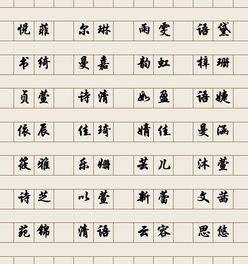 悦菲 尔琳 雨雯 语黛
书绮 曼嘉 韵虹 梓珊
贞萱 诗清 如盈 语婕
依辰 佳琦 婧佳 曼涵
筱雅 乐姗 芸儿 沐萱
诗芝 以萱 新蕾 文茜
苑锦 清语 云容 思悠